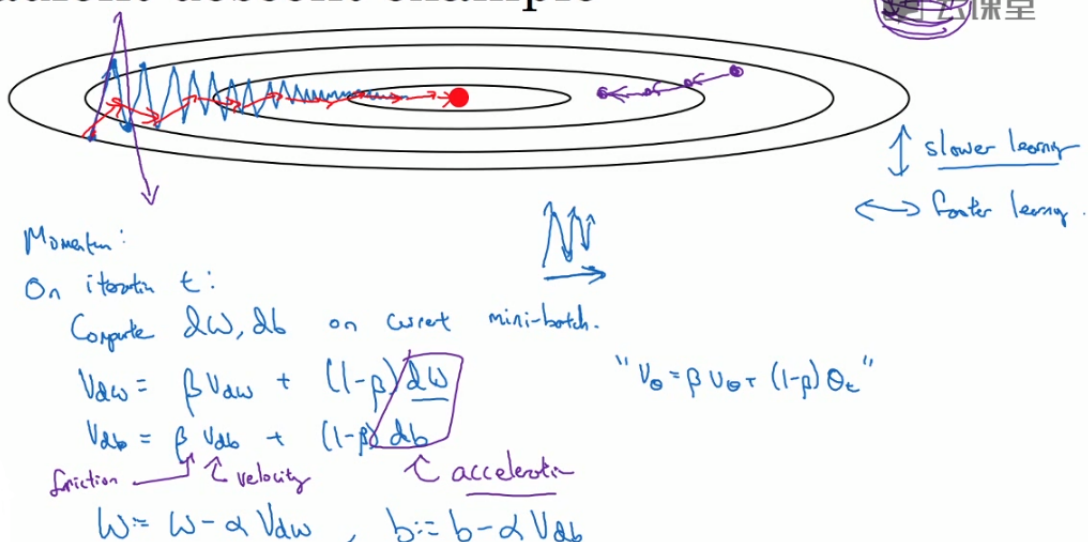 gradient descent example
云课堂
slower learning
faster learning.
Momentum:
On iteration t:
Compute dW, db on current mini-batch.
Vdw = β Vdw + (1-β) dW
"Vθ = β Vθ + (1-β) θt"
Vdb = β Vdb + (1-β) db
friction velocity acceleration
W := W - α Vdw , b := b - α Vdb